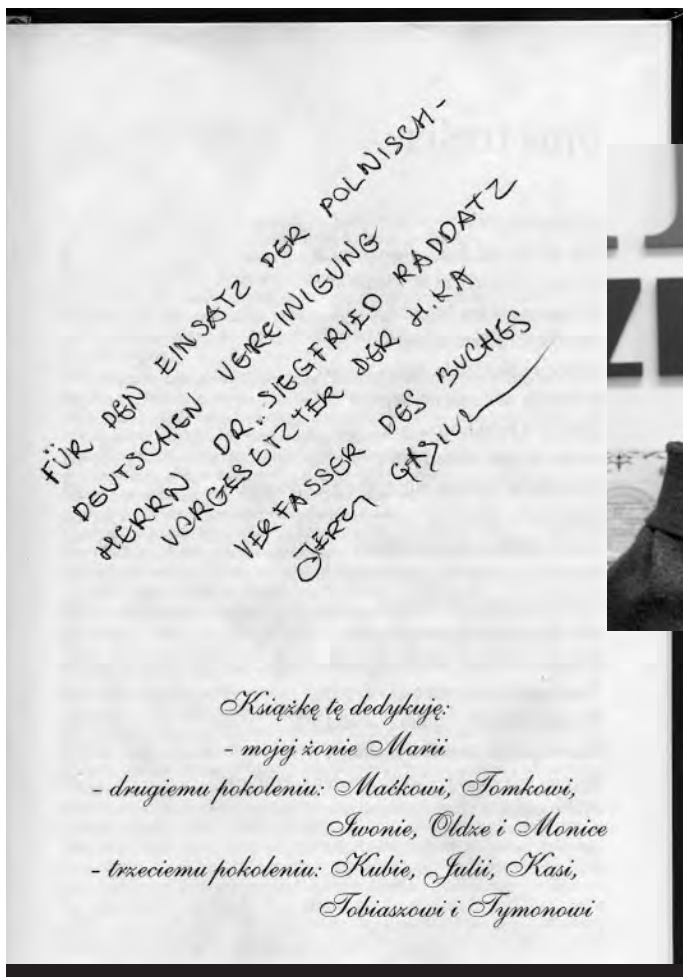 FÜR DEN EINSATZ DER POLNISCH-
DEUTSCHEN VEREINIGUNG
HERRN DR. SIEGFRIED RADDATZ
VORGESETZTER DER H.KA
VERFASSER DES BUCHES
JERZY
Książkę tę dedykuję:
- mojej żonie Marii
- drugiemu pokoleniu: Maćkowi, Tomkowi,
Iwonie, Oldze i Monice
- trzeciemu pokoleniu: Kubie, Julii, Kasi,
Tobiaszowi i Tymonowi